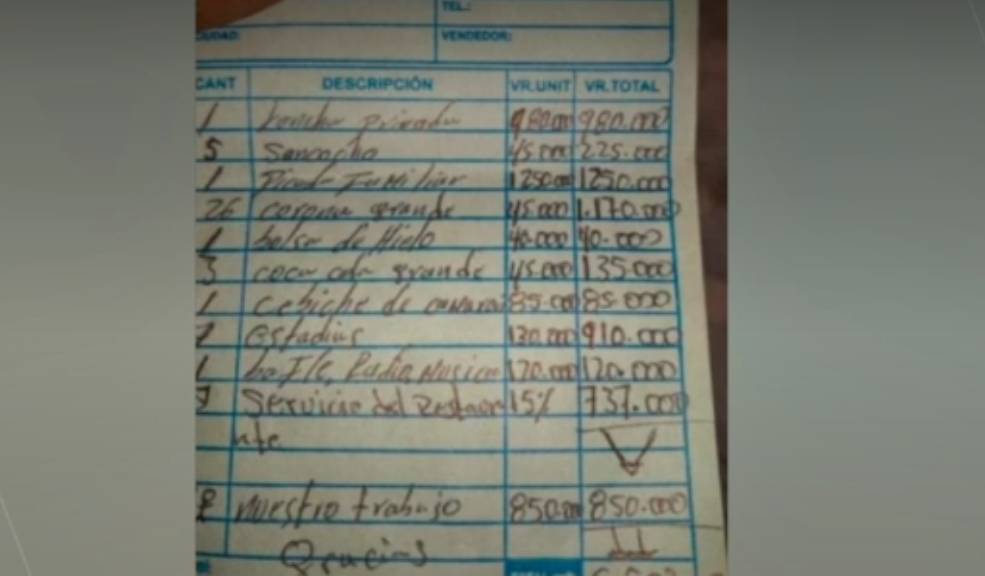 TEL.:
CIUDAD: VENDEDOR:
CANT DESCRIPCIÓN VR.UNIT VR.TOTAL
1 Lancha Privada 980.000 980.000
5 Sancocho 45.000 225.000
1 Picada Familiar 1250.000 1250.000
26 corona grande 45.000 1.170.000
1 bolsa de Hielo 40.000 40.000
3 coca cola grande 45.000 135.000
1 cebiche de 85.000 85.000
7 estadias 130.000 910.000
1 bafle, Radio, Musica 120.000 120.000
Servicio del Restaura 15% 737.000
nte
nuestro trabajo 850.000 850.000
Gracias